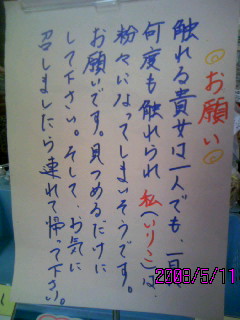 お願い
触れる貴女は一人でも、一日
何度も触れられ 私(いりこ)は、
粉々になってしまいそうです。
お願いです。見つめるだけに
して下さい。そして、お気に
召しましたら連れて帰って下さい。
2008/5/11